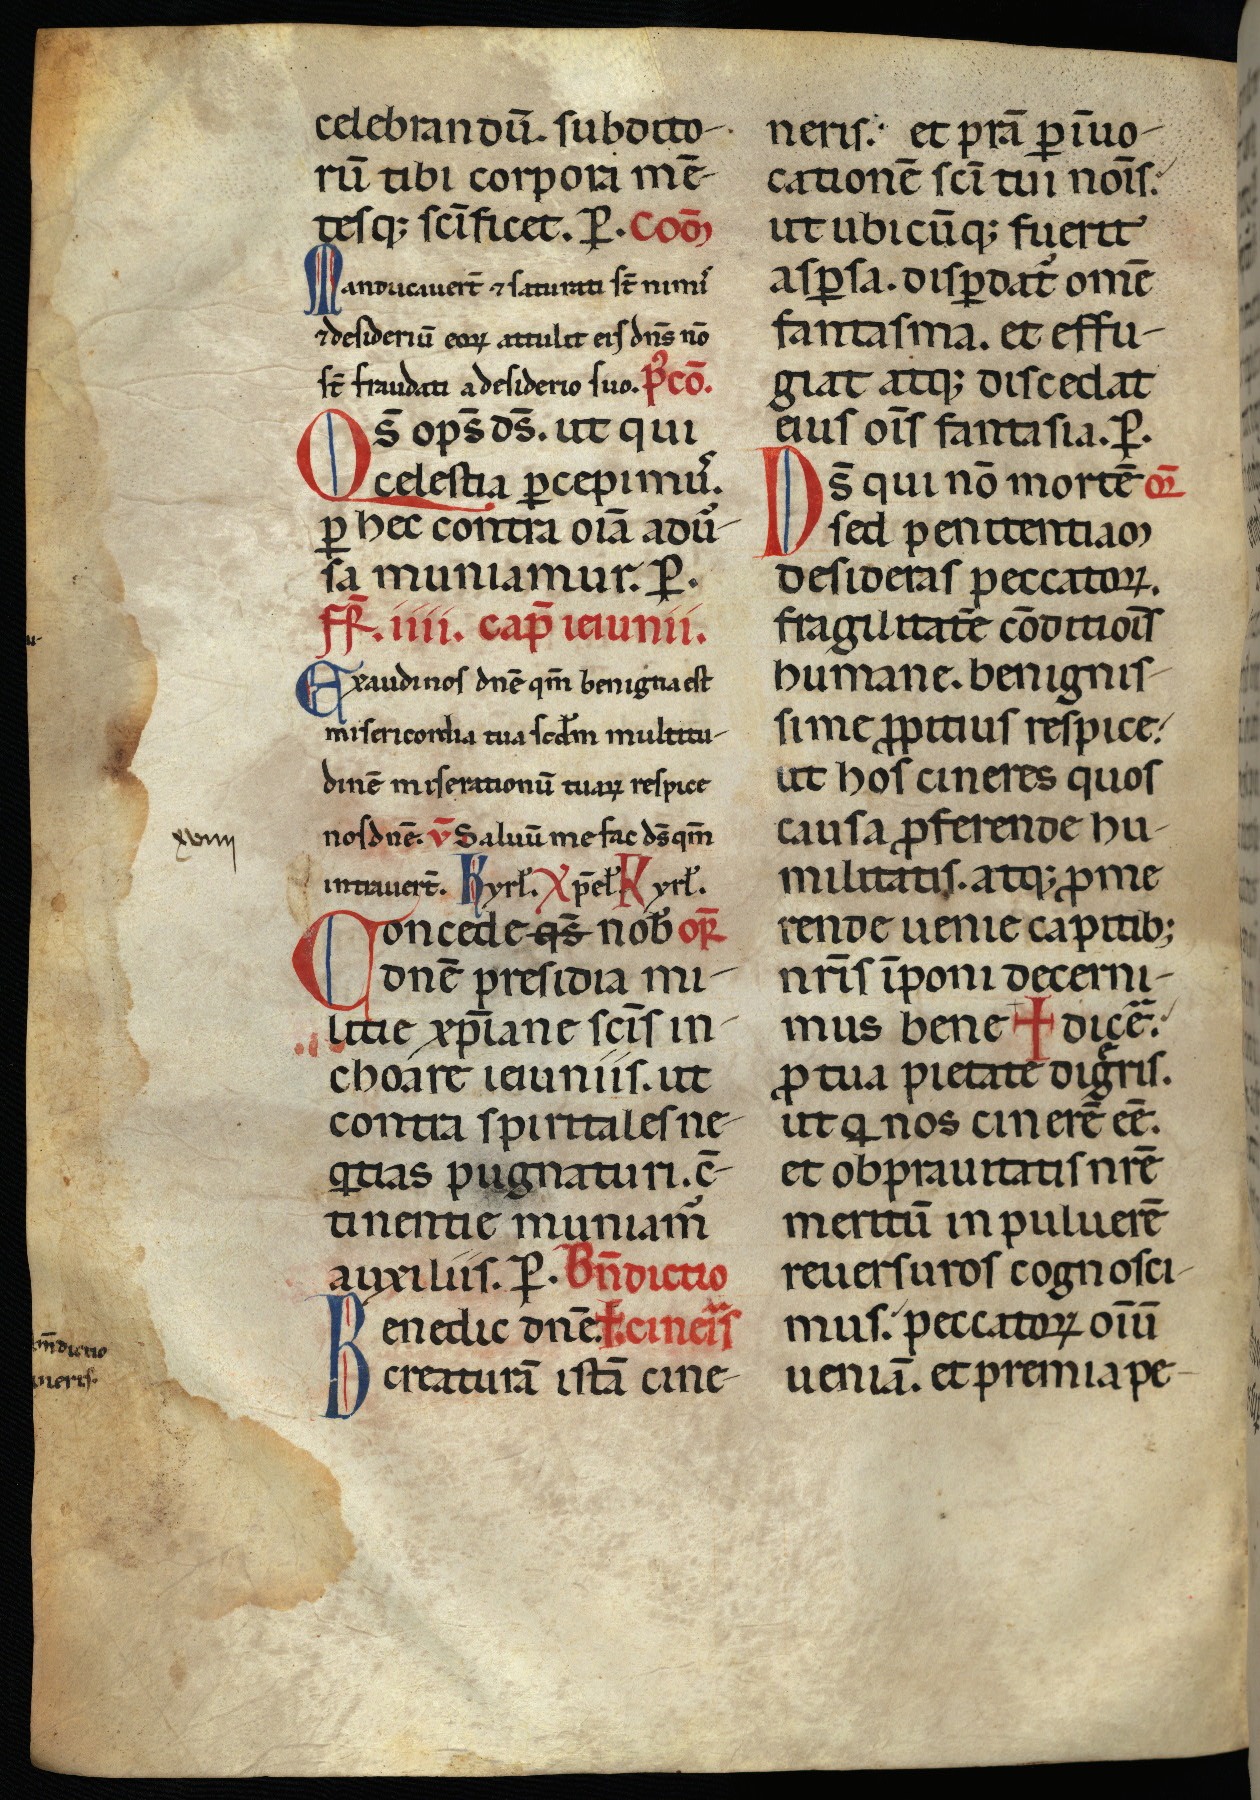 celebrandū. subdito-
rū tibi corpora mē-
tesq; sc̄ificet. P̱. Com̄
Manducauer̄t ⁊ saturati st̄ nimis
⁊ desideriū eoꝝ attulit eis dn̄s nō
st̄ fraudati a desiderio suo. P̓cō.
Qs̄ op̄s ds̄. ut qui
celestia ꝑcepimꝰ.
ꝑ hec contra oīa adū-
sa muniamur. P̱.
Fr̄. iiii. cap̄ ieiunii.
Exaudi nos dn̄e qm̄ benigna est
misericordia tua scd̄m multitu-
dinē miserationū tuaꝝ respice
nos dn̄e. v̄ Saluū me fac ds̄ qm̄
intrauer̄t. Kyrł. Xp̄eł. Kyrł.
xviiii
Concede qs̄ nob̄ or̄
dn̄e presidia mi-
litie xp̄iane sc̄is in-
choare ieiuniis. ut
contra spiritales ne-
qtias pugnaturi. c̄-
tinentie muniam̄
auxiliis. P̱. Bn̄dictio
Benedic dn̄e ✝. cineris
creaturā istā cine-
m̄dictio
neris.
neris. et p̄rā ꝑ īuo-
cationē sc̄i tui nōis.
ut ubicūq; fuerit
asꝑsa. disꝑdat̄ omē
fantasma. et effu-
giat atq; discedat
eius ōis fantasia. P̱.
Ds̄ qui nō mortē or̄
sed penitentiam
desideras peccatoꝝ.
fragilitatē cōditiōis
humane. benignis-
sime ꝓpitius respice.
ut hos cineres quos
causa ꝓferende hu-
militatis. atq; ꝓme
rende uenie capitib;
nr̄is īponi decerni-
mus bene ✝ dicē.
ꝓ tua pietate digr̄is.
ut q nos cinerē eē.
et ob prauitatis nr̄e
meritū in puluerē
reuersuros cognosci-
mus. peccatoꝝ oīū
ueniā. et premia pe-